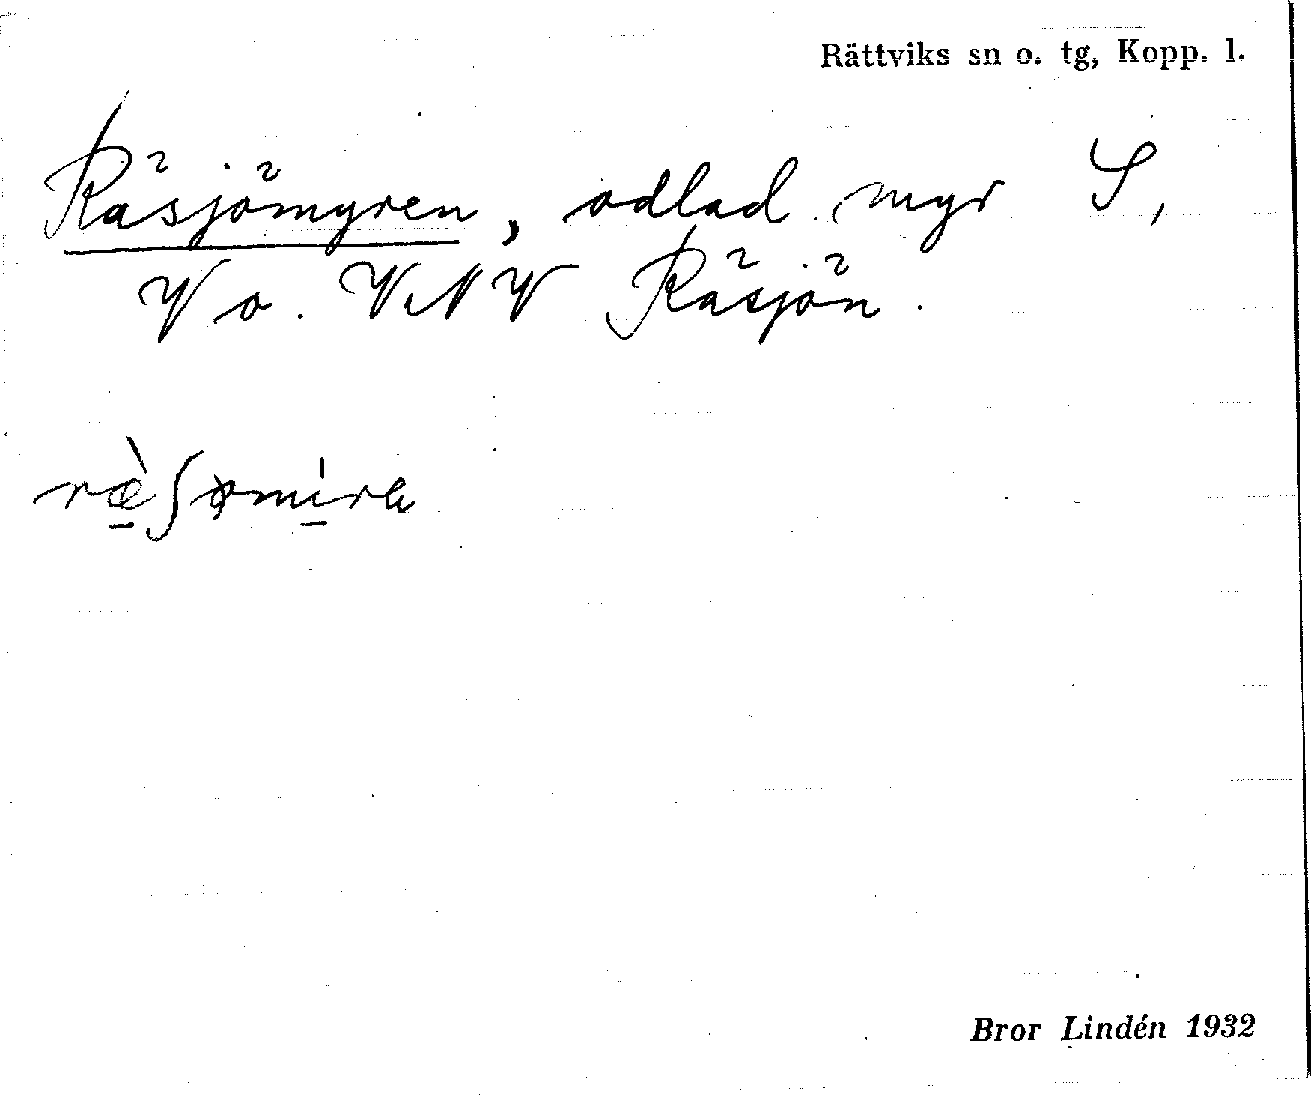 Rättviks sn o. tg, Kopp. l.
Räsjömyren, odlad myr S,
V o. VNV Räsjön.
ræ̀ʃømirα
Bror Lindén 1932